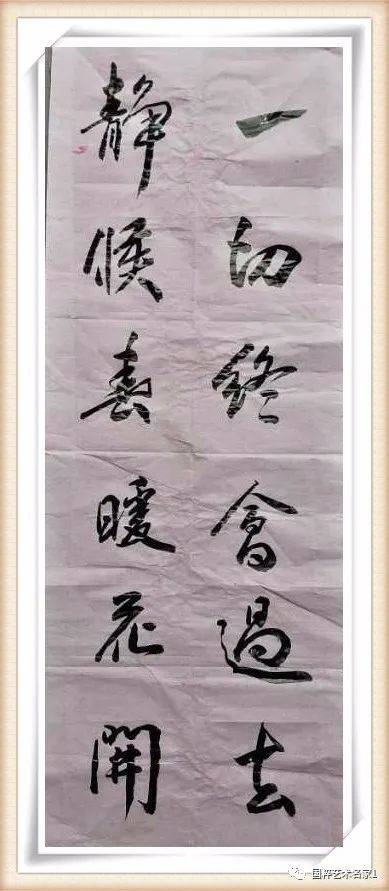 一切终會過去
静候春暖花開
国粹艺术名家1